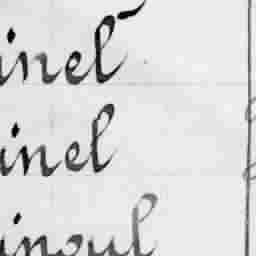 inel
inel
inoul